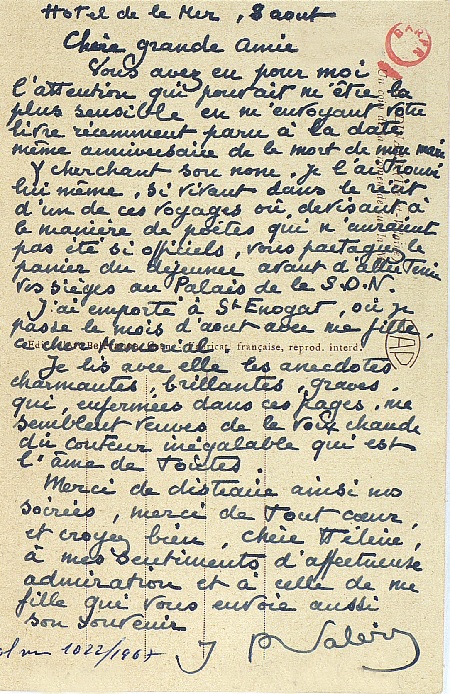 Hotel de la Mer, 8 aout
Chère grande Amie
Vous avez eu pour moi
l'attention qui pouvait m'être la
plus sensible en m'envoyant votre
livre récemment paru à la date
même anniversaire de la mort de mon mari
Y cherchant son nom, je l'ai trouvé
lui même, si vivant dans le récit
d'un de ces voyages où, devisant à
la manière de poètes qui n'auraient
pas été si officiels, vous partagiez le
panier du déjeuner avant d'aller tenir
vos sièges au Palais de la S.D.N.
J'ai emporté à St Enogat, où je
passe le mois d'aout avec ma fille,
ce cher
Fabricat. française, reprod. interd.
Je lis avec elle les anecdotes
charmantes, brillantes, graves,
qui, enfermées dans ces pages, me
semblent veuves de la voix chaude
du conteur inégalable qui est
l'âme de
Merci de distraire ainsi nos
soirées, merci de tout cœur,
et croyez bien, chère Hélène,
à mes sentiments d'affectueuse
admiration et à celle de ma
fille qui vous envoie aussi
son souvenir
J P Valéry
1022/1967